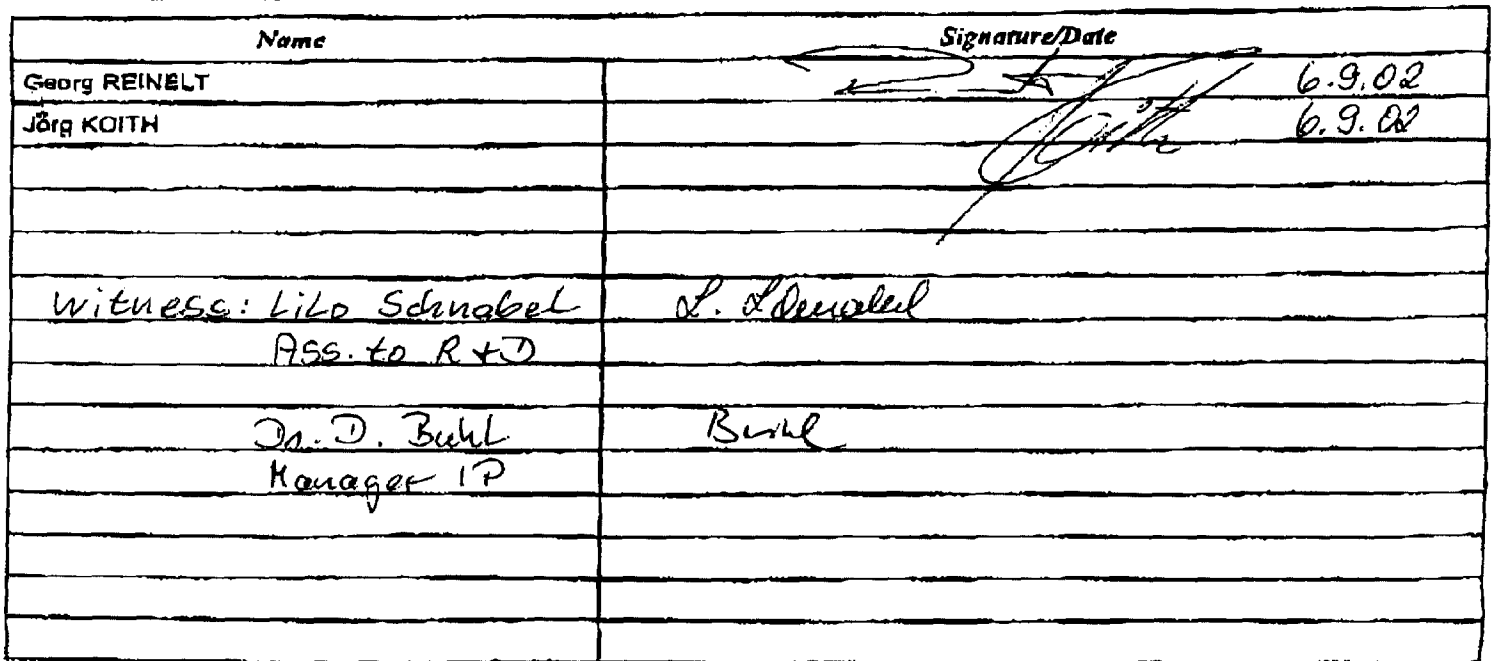 Name Signature/Date
Georg REINELT 6.9.02
Jörg KOITH 6.9.02
Witness: Lilo Schnabel L. Schnabel
Ass. to R+D
Dr. D. Buhl Buhl
Manager IP